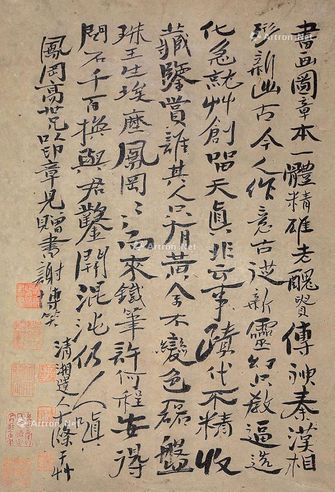 書画圖章本一體精雄老醜貴傳神秦漢相
形新出古今人作意古從新靈幻只教逼造
化急就艸創留天真非云事蹟代不精收
藏鑒賞誰其人只有黃金不變色磊盤
珠玉生埃塵鳳岡鳳岡向來鐵筆許何程安得
閒石千百換與君鑿開混沌仍人嗔
鳳岡高世兄以印章見贈書謝博笑
清湘遺人大滌子艸